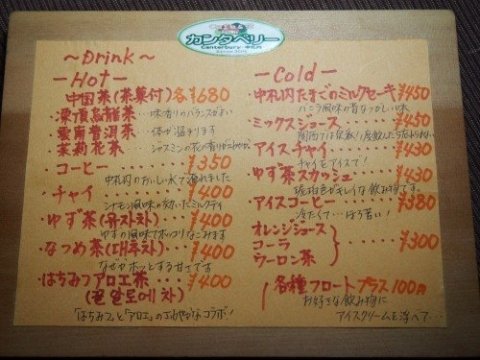 カンタベリー
Canterbury
~Drink~
-Hot-
中国茶(茶菓付)各¥680
・凍頂烏龍茶 味・香りのバランスがよい
・雲南普洱茶 体が温まります
・茉莉花茶 ジャスミンの花の香り
・コーヒー・・・・¥350
中札内のおいしい水で淹れました
・チャイ・・・・¥400
シナモン風味の効いたミルクティ
・ゆず茶(유자차) ¥400
ゆずの風味でホッコリなごみます
・なつめ茶(대추차) ¥400
なぜかホッとする甘さです
・はちみつアロエ茶・・・¥400
(꿀알로에차)
「はちみつ」と「アロエ」のコラボ!
-Cold-
・中札内たまごのミルクセーキ ¥450
バニラ風味の昔なつかしい味
・ミックスジュース ¥450
・アイスチャイ ¥430
チャイをアイスで!
・ゆず茶スカッシュ ¥430
琥珀色がキレイな飲み物です。
・アイスコーヒー・¥380
冷たくて…ほろ苦い!
・オレンジジュース
コーラ
ウーロン茶
・・・¥300
・各種フロートプラス100円
お好きな飲み物に
アイスクリームを浮べて…